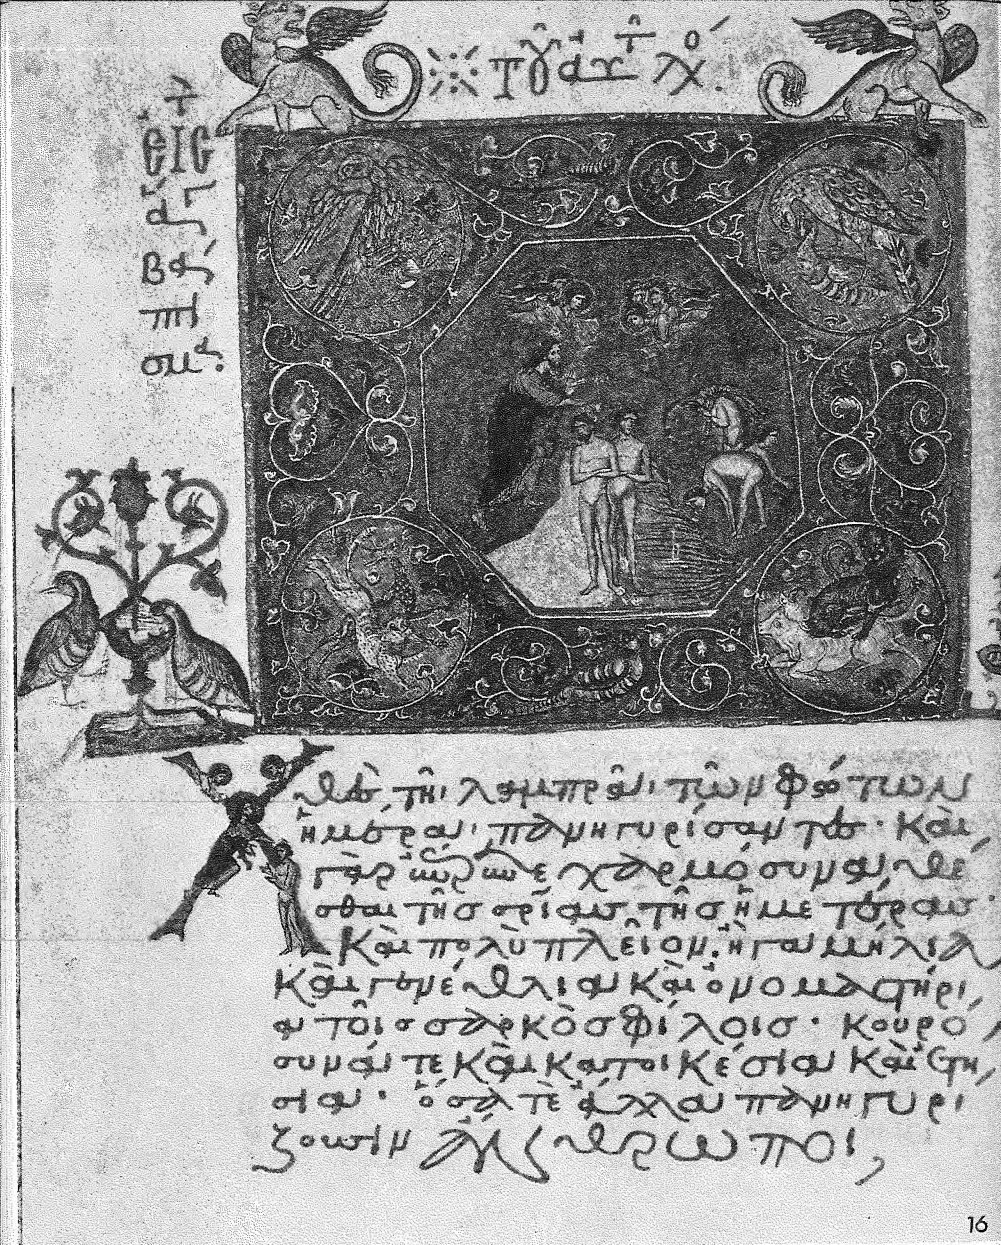 τοῦ αὐτ λό
εἰς
τὸ
ἅγ
βά
πτι
σμα.
Χθὲς τῆ λαμπρᾶ τῶν φώτων
ἡμέρα πανηγυρίσαντες · καὶ
γὰρ ἔπρεπε χαρμόσυνα θέ
σθαι τῆς σρίας τῆς ἡμετέρας ·
καὶ πολὺ πλεῖον ἢ γαμήλια
καὶ γενέθλια καὶ ὀνομαστήρι
α τοῖς σαρκὸς φίλοις · κουρό
συνά τε καὶ κατοικέσια καὶ ἐτή
σια · ὅσα τὲ ἄλλα πανηγυρί
ζουσιν ἄνθρωποι,
16